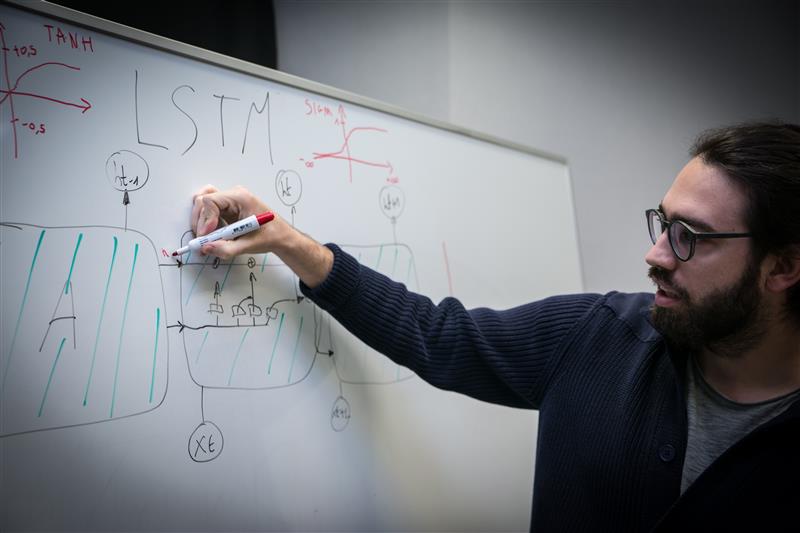 TANH
+0,5
-0,5
LSTM
SIGM
1
-∞
+∞
ht-1
ht
ht+1
A
Xt